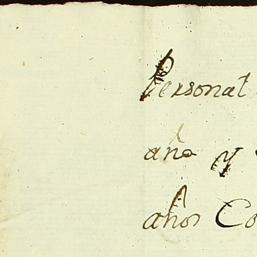 Personal
año y
años Co